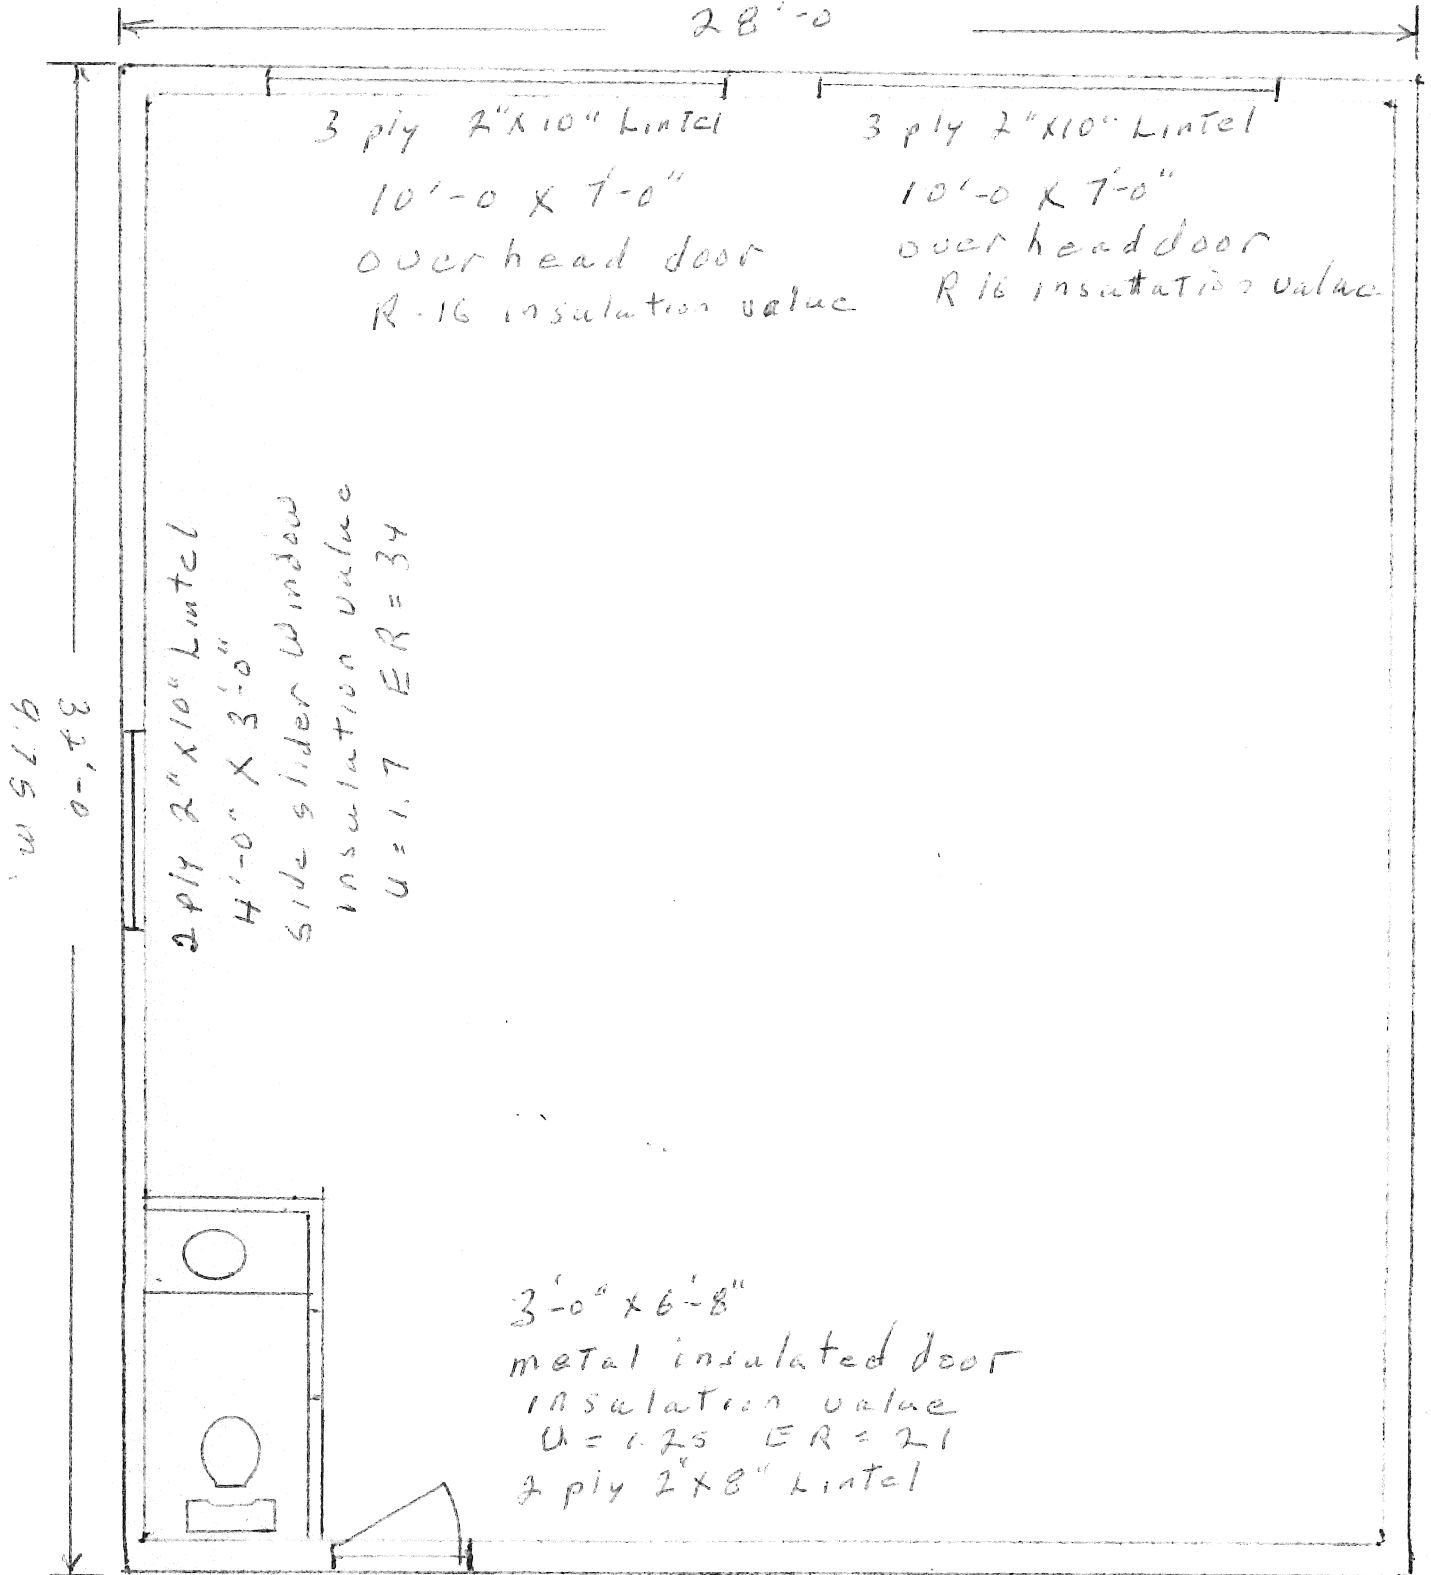 28'-0
3 ply 2"x10" Lintel
10'-0 x 7'-0"
overhead door
R-16 insulation value
3 ply 2"x10" Lintel
10'-0 x 7'-0"
overhead door
R 16 insulation value
2 ply 2"x10" Lintel
4'-0" x 3'-0"
side slider window
insulation value
U=1.7 ER=34
32'-0
9.75 m.
3'-0" x 6'-8"
metal insulated door
insulation value
U=1.25 ER=21
2 ply 2"x8" Lintel